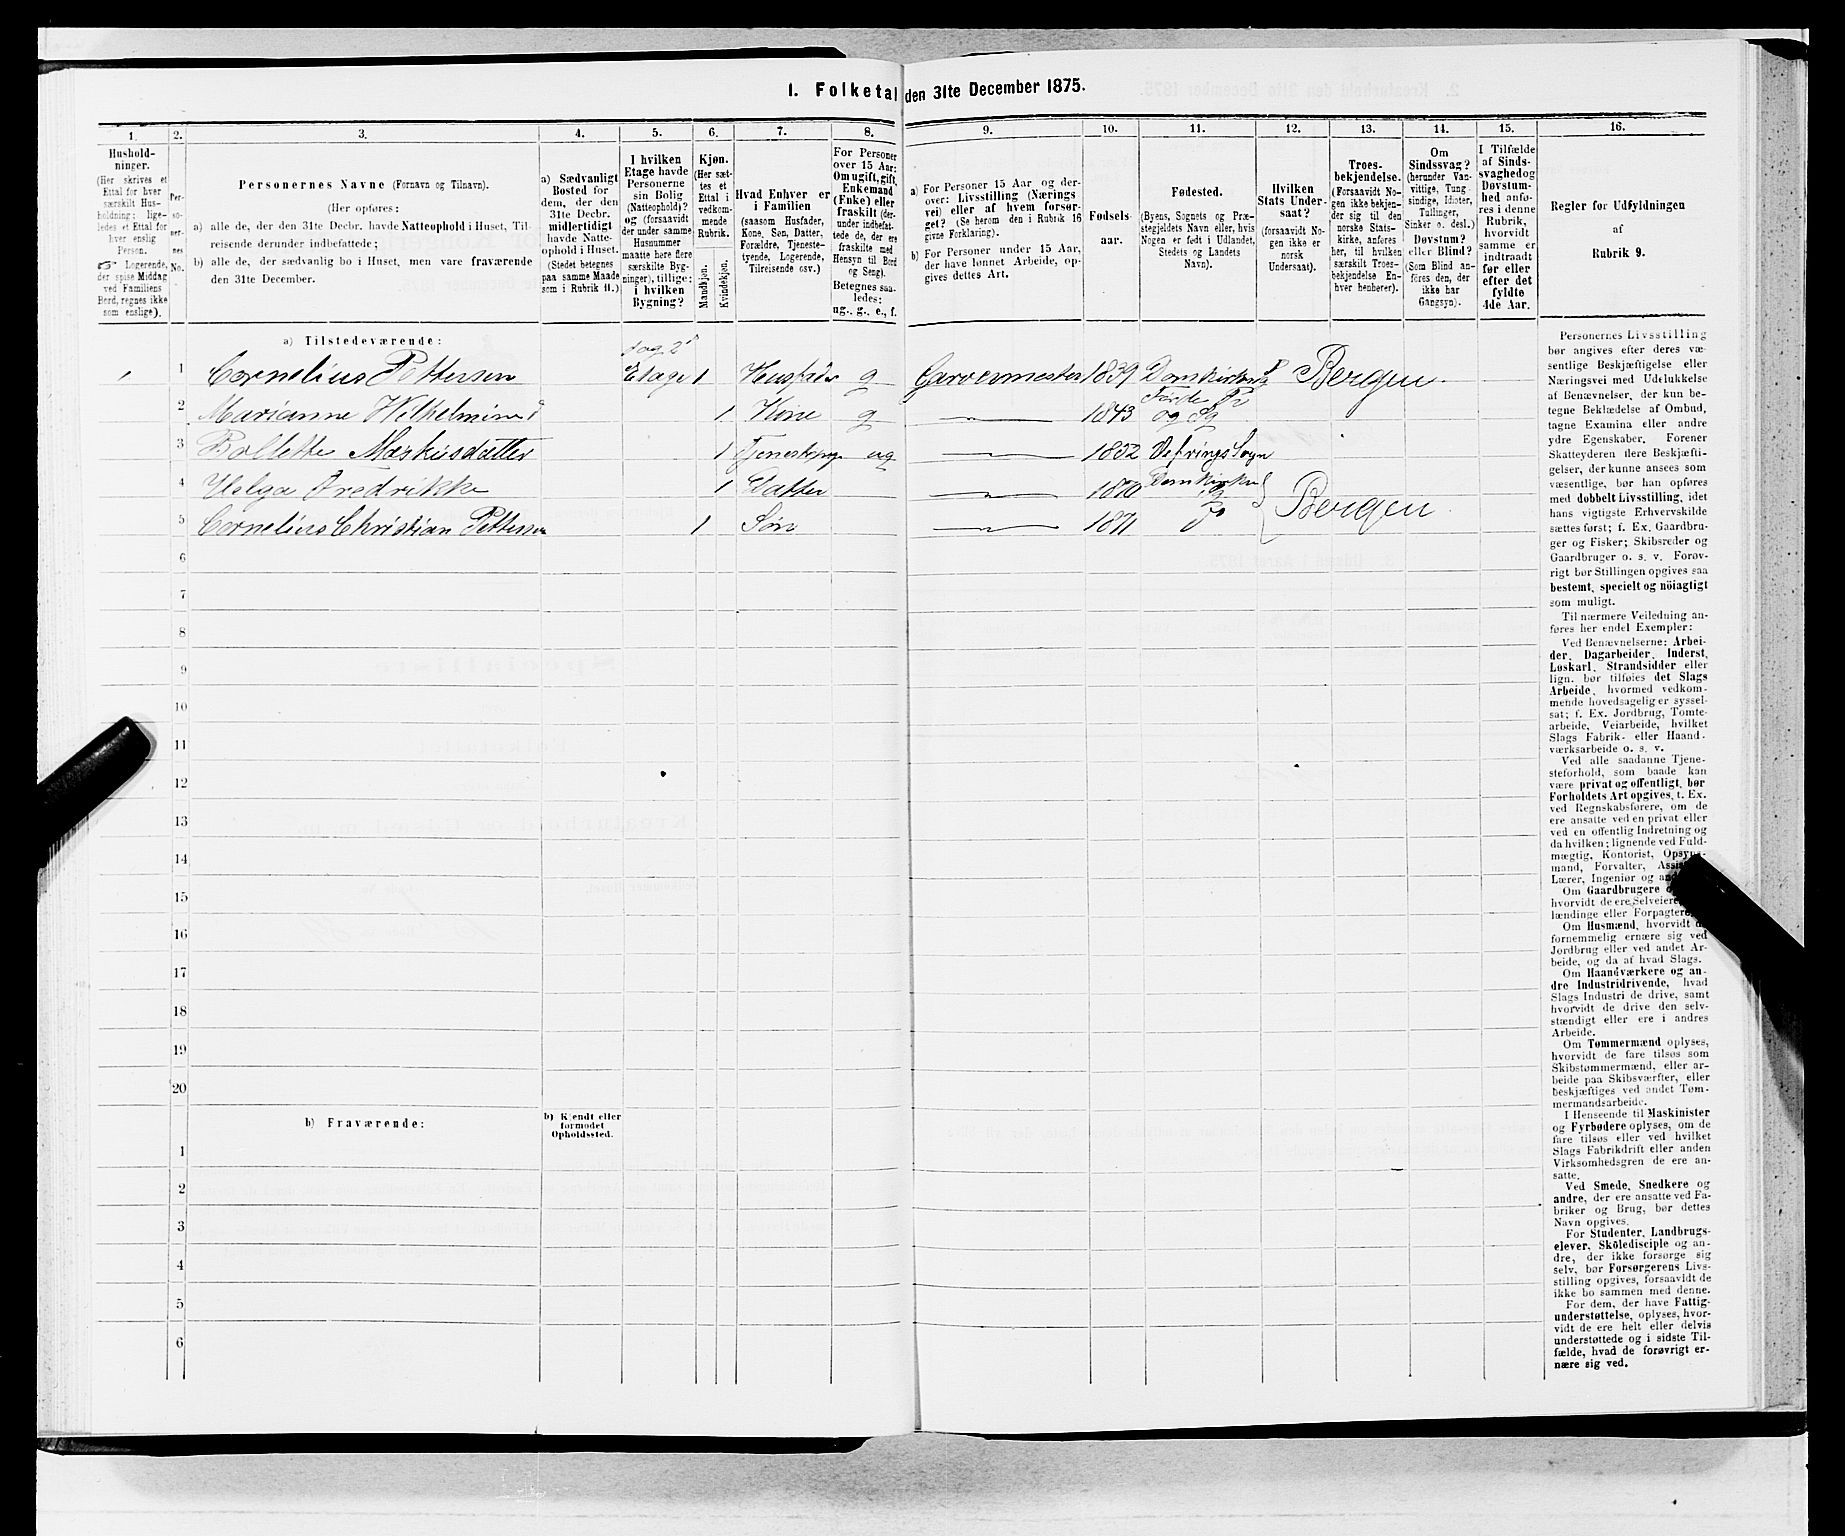 1. Folketal den 31te December 1875.
1.
2.
3.
4.
5.
6.
7.
8.
9.
10.
11.
12.
13.
14.
15.
16.
Hushold-
ninger.
(Her skrives et
Ettal for hver
særskilt Hus-
holdning; lige-
ledes et Ettal for
hver enslig
Person.
☞ Logerende,
der spise Middag
ved Familiens
Bord, regnes ikke
som enslige).
Per-
so-
ner-
nes
No.
Personernes Navne (Fornavn og Tilnavn).
(Her opføres:
a) alle de, der den 31te Decbr. havde Natteophold i Huset, Til-
reisende derunder indbefattede;
b) alle de, der sædvanlig bo i Huset, men vare fraværende
den 31te December.
a) Sædvanligt
Bosted for
dem, der den
31te Decbr.
midlertidigt
havde Natte-
ophold i Huset.
(Stedet betegnes
paa samme Maade
som i Rubrik 11.)
I hvilken
Etage havde
Personerne
sin Bolig
(Natteophold)?
og (forsaavidt
der under samme
Husnummer
maatte høre flere
særskilte Byg-
ninger), tillige:
i hvilken
Bygning?
Kjøn.
(Her sæt-
tes et
Ettal i
vedkom-
mende
Rubrik.
Mandkjøn.
Kvindekjøn.
Hvad Enhver er
i Familien
(saasom Husfader,
Kone, Søn, Datter,
Forældre, Tjeneste-
tyende, Logerende,
Tilreisende osv.)
For Personer
over 15 Aar:
Om ugift, gift,
Enkemand
(Enke) eller
fraskilt (der-
under indbefat-
tede de, der ere
fraskilte med
Hensyn til Bord
og Seng).
Betegnes saa-
ledes:
ug., g., e., f.
a) For Personer 15 Aar og der-
over: Livsstilling (Nærings
vei) eller af hvem forsør-
get? (Se herom den i Rubrik 16
givne Forklaring).
b) For Personer under 15 Aar,
der have lønnet Arbeide, op-
gives dettes Art.
Fødsels-
aar.
Fødested.
(Byens, Sognets og Præ-
stegjeldets Navn eller, hvis
Nogen er født i Udlandet,
Stedets og Landets
Navn).
Hvilken
Stats Under-
saat?
(forsaavidt No-
gen ikke er
norsk
Undersaat).
Troes-
bekjendelse.
(Forsaavidt No-
gen ikke bekjen-
der sig til den
norske Stats-
kirke, anføres
her, til hvilken
særskilt Troes-
bekjendelse En-
hver henhører).
Om
Sindssvag?
(herunder Van-
vittige, Tung
sindige, Idioter,
Tullinger,
Sinker o. desl.)
Døvstum?
eller Blind?
(Som Blind an-
føres den, der
ikke har
Gangsyn).
I Tilfælde
af Sinds-
svaghed og
Døvstum-
hed anfø-
res i denne
Rubrik,
hvorvidt
samme er
indtraadt
før eller
efter det
fyldte
4de Aar.
Regler for Udfyldningen
af
Rubrik 9.
a) Tilstedeværende:
1 Cornelius Pettersen 1 og 2 Etage 1 Husfader g Garvermester 1839 Domkirkens P Bergen.
2 Marianne Wilhelmine 1 Kone g 1843 Førde Pr og Sg
3 Bollette Maskusdatter 1 ug 1852 Sogn
4 Helga Fredrikke 1 Datter 1870 Domkirkens Bergen.
5 Cornelius Christian Pettersen 1 Søn 1871
6
7
8
9
10
11
12
13
14
15
16
17
18
19
20
b) Fraværende:
b) Kjendt eller
formodet
Opholdssted.
1
2
3
4
5
6
Personernes Livsstilling
bør angives efter deres væ-
sentlige Beskjæftigelse eller
Næringsvei med Udelukkelse
af Benævnelser, der kun be-
tegne Beklædelse af Ombud,
tagne Examina eller andre
ydre Egenskaber. Forener
Skatteyderen flere Beskjæfti-
gelser, der kunne ansees som
væsentlige, bør han opføres
med dobbelt Livsstilling, idet
hans vigtigste Erhvervskilde
sættes først; f. Ex. Gaardbru-
ger og Fisker; Skibsreder og
Gaardbruger o. s. v. Forøv-
rigt bør Stillingen opgives saa
bestemt, specielt og nöiagtigt
som muligt.
Til nærmere Veiledning an-
føres her endel Exempler:
Ved Benævnelserne: Arbei-
der, Dagarbeider, Inderst,
Løskarl, Strandsidder eller
lign. bør tilføies det Slags
Arbeide, hvormed vedkom-
mende hovedsagelig er syssel-
sat; f. Ex. Jordbrug, Tomte-
arbeide, Veiarbeide, hvilket
Slags Fabrik- eller Haand-
værksarbeide o. s. v.
Ved alle saadanne Tjene-
steforhold, som baade kan
være privat og offentligt, bør
Forholdets Art opgives, t. Ex.
ved Regnskabsførere, om de
ere ansatte ved en privat eller
ved en offentlig Indretning og
da hvilken; lignende ved Fuld-
mægtig, Kontorist, Opsyns-
mand, Forvalter,
Lærer, Ingeniør og
Om Gaardbrugere
hvorvidt de ere Selveiere,
lændinge eller Forpagtere.
Om Husmænd, hvorvidt
fornemmelig ernære sig ved
Jordbrug eller ved andet Ar-
beide, og da af hvad Slags.
Om Haandværkere og an-
dre Industridrivende, hvad
Slags Industri de drive, samt
hvorvidt de drive den selv-
stændigt eller ere i andres
Arbeide.
Om Tømmermænd oplyses,
hvorvidt de fare tilsøs som
Skibstømmermænd, eller ar-
beide paa Skibsværfter, eller
beskjæftiges ved andet Tøm-
mermandsarbeide.
I Henseende til Maskinister
og Fyrbødere oplyses, om de
fare tilsøs eller ved hvilket
Slags Fabrikdrift eller anden
Virksomhedsgren de ere an-
satte.
Ved Smede, Snedkere og
andre, der ere ansatte ved Fa-
briker og Brug, bør dettes
Navn opgives.
For Studenter, Landbrugs-
elever, Skoledisciple og an-
dre, der ikke forsørge sig
selv, bør Forsørgerens Livs-
stilling opgives, forsaavidt de
ikke bo sammen med denne.
For dem, der have Fattig-
understøttelse, oplyses, hvor-
vidt de ere helt eller delvis
understøttede og i sidste Til-
fælde, hvad de forøvrigt er-
nære sig ved.